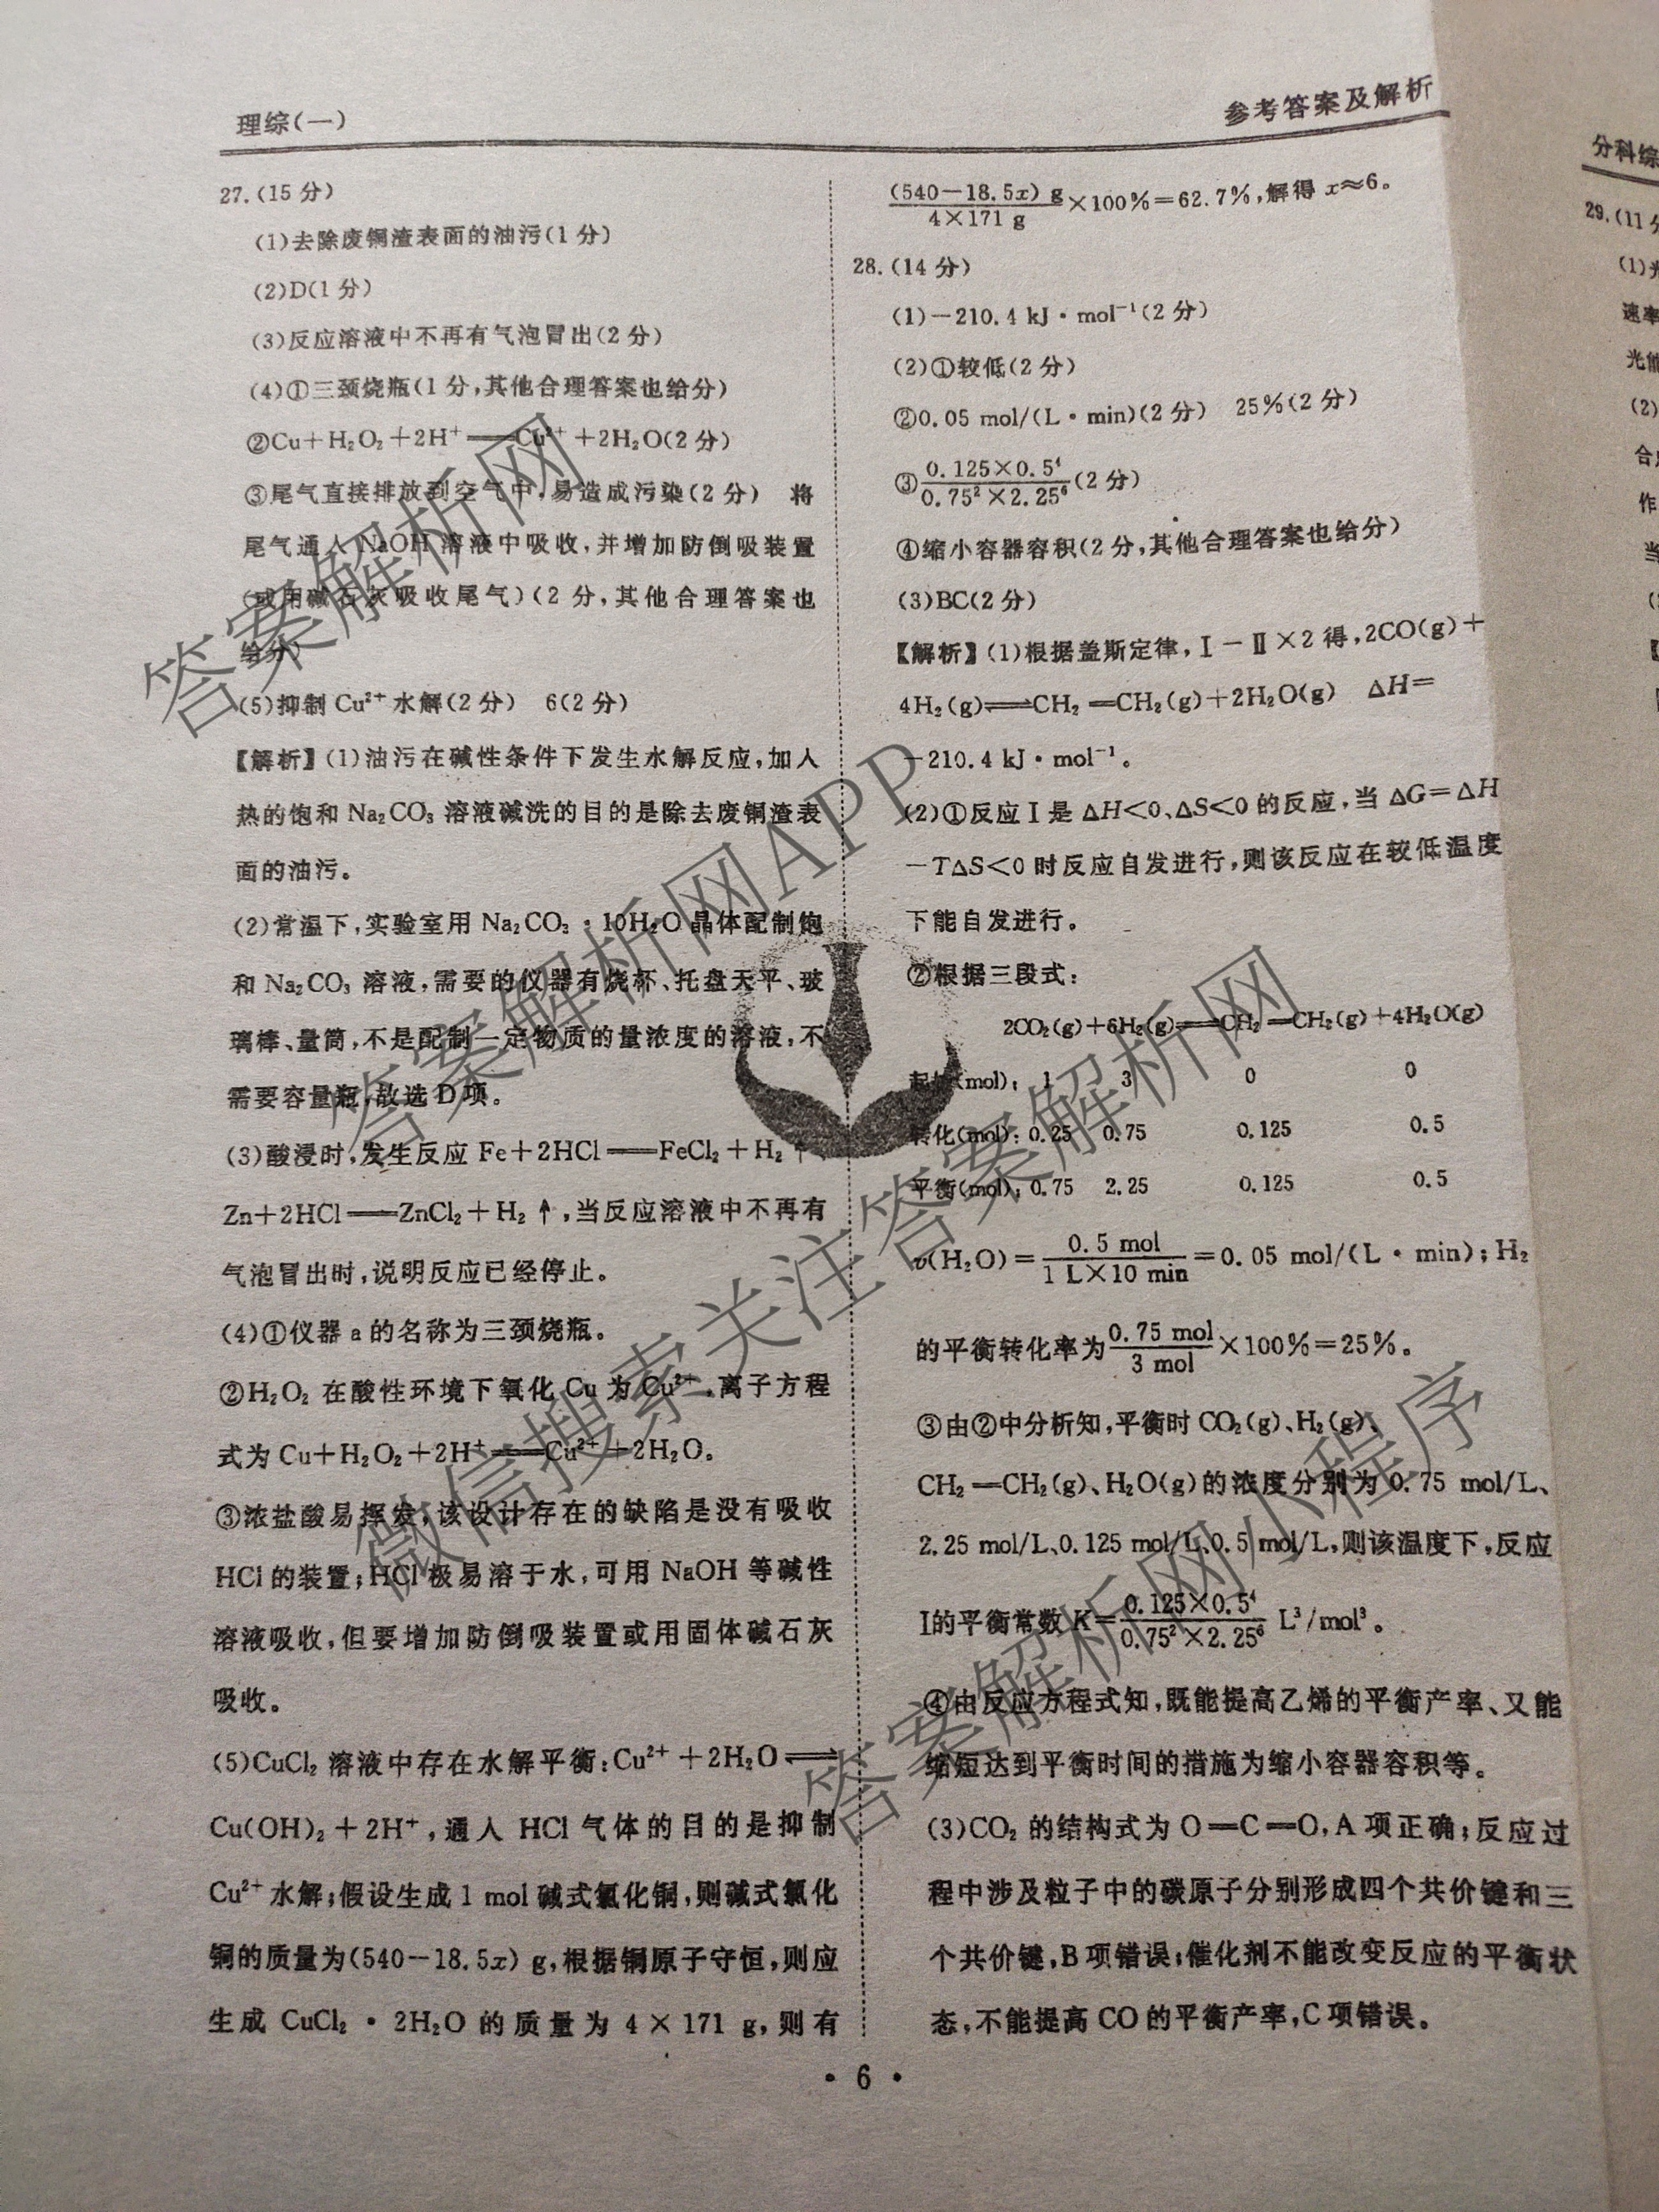 理综(一)
参考答案及解析
27.(15分)
(1)去除废铜渣表面的油污(1分)
(2)D(1分)
(3)反应溶液中不再有气泡冒出(2分)
(4)①三颈烧瓶(1分,其他合理答案也给分)
②Cu+H₂O₂+2H⁺══Cu²⁺+2H₂O(2分)
③尾气直接排放到空气中,易造成污染(2分) 将
尾气通入NaOH溶液中吸收,并增加防倒吸装置
(或用碱石灰吸收尾气)(2分,其他合理答案也
给分)
(5)抑制Cu²⁺水解(2分) 6(2分)
【解析】(1)油污在碱性条件下发生水解反应,加入
热的饱和Na₂CO₃溶液碱洗的目的是除去废铜渣表
面的油污。
(2)常温下,实验室用Na₂CO₃·10H₂O晶体配制饱
和Na₂CO₃溶液,需要的仪器有烧杯、托盘天平、玻
璃棒、量筒,不是配制一定物质的量浓度的溶液,不
需要容量瓶,故选D项。
(3)酸浸时,发生反应Fe+2HCl══FeCl₂+H₂↑、
Zn+2HCl══ZnCl₂+H₂↑,当反应溶液中不再有
气泡冒出时,说明反应已经停止。
(4)①仪器a的名称为三颈烧瓶。
②H₂O₂在酸性环境下氧化Cu为Cu²⁺,离子方程
式为Cu+H₂O₂+2H⁺══Cu²⁺+2H₂O。
③浓盐酸易挥发,该设计存在的缺陷是没有吸收
HCl的装置;HCl极易溶于水,可用NaOH等碱性
溶液吸收,但要增加防倒吸装置或用固体碱石灰
吸收。
(5)CuCl₂溶液中存在水解平衡:Cu²⁺+2H₂O⇌
Cu(OH)₂+2H⁺,通入HCl气体的目的是抑制
Cu²⁺水解;假设生成1 mol碱式氯化铜,则碱式氯化
铜的质量为(540-18.5x) g,根据铜原子守恒,则应
生成CuCl₂·2H₂O的质量为4×171 g,则有
(540-18.5x) g/4×171 g×100%=62.7%,解得x≈6。
28.(14分)
(1)-210.4 kJ·mol⁻¹(2分)
(2)①较低(2分)
②0.05 mol/(L·min)(2分) 25%(2分)
③0.125×0.5⁴/0.75²×2.25⁶(2分)
④缩小容器容积(2分,其他合理答案也给分)
(3)BC(2分)
【解析】(1)根据盖斯定律,Ⅰ-Ⅱ×2得,2CO(g)+
4H₂(g)⇌CH₂═CH₂(g)+2H₂O(g) ΔH=
-210.4 kJ·mol⁻¹。
(2)①反应Ⅰ是ΔH<0、ΔS<0的反应,当ΔG=ΔH
-TΔS<0时反应自发进行,则该反应在较低温度
下能自发进行。
②根据三段式:
2CO₂(g)+6H₂(g)⇌CH₂═CH₂(g)+4H₂O(g)
起始(mol): 1 3 0 0
转化(mol): 0.25 0.75 0.125 0.5
平衡(mol): 0.75 2.25 0.125 0.5
v(H₂O)=0.5 mol/1 L×10 min=0.05 mol/(L·min);H₂
的平衡转化率为0.75 mol/3 mol×100%=25%。
③由②中分析知,平衡时CO₂(g)、H₂(g)、
CH₂═CH₂(g)、H₂O(g)的浓度分别为0.75 mol/L、
2.25 mol/L、0.125 mol/L、0.5 mol/L,则该温度下,反应
Ⅰ的平衡常数K=0.125×0.5⁴/0.75²×2.25⁶ L³/mol³。
④由反应方程式知,既能提高乙烯的平衡产率、又能
缩短达到平衡时间的措施为缩小容器容积等。
(3)CO₂的结构式为O═C═O,A项正确;反应过
程中涉及粒子中的碳原子分别形成四个共价键和三
个共价键,B项错误;催化剂不能改变反应的平衡状
态,不能提高CO的平衡产率,C项错误。
·6·
分科综
29.(11分
(1)光
速率
光能
(2)
合
作
当
答案解析网
答案解析网APP
微信搜索关注答案解析网
答案解析网小程序